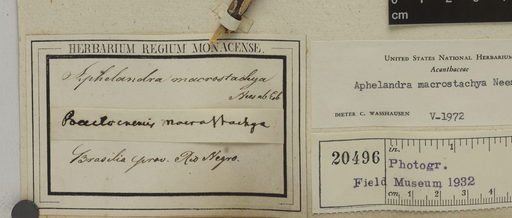 cm
HERBARIUM REGIUM MONACENSE.
Aphelandra macrostachya
Nees ab Es.
macrostachya
Brasilia prov. Rio Negro.
UNITED STATES NATIONAL HERBARIUM
Acanthaceae
Aphelandra macrostachya Nees
DIETER C. WASSHAUSEN V-1972
20496
in. 1
Photogr.
Field Museum 1932
cm 1 2 3 4